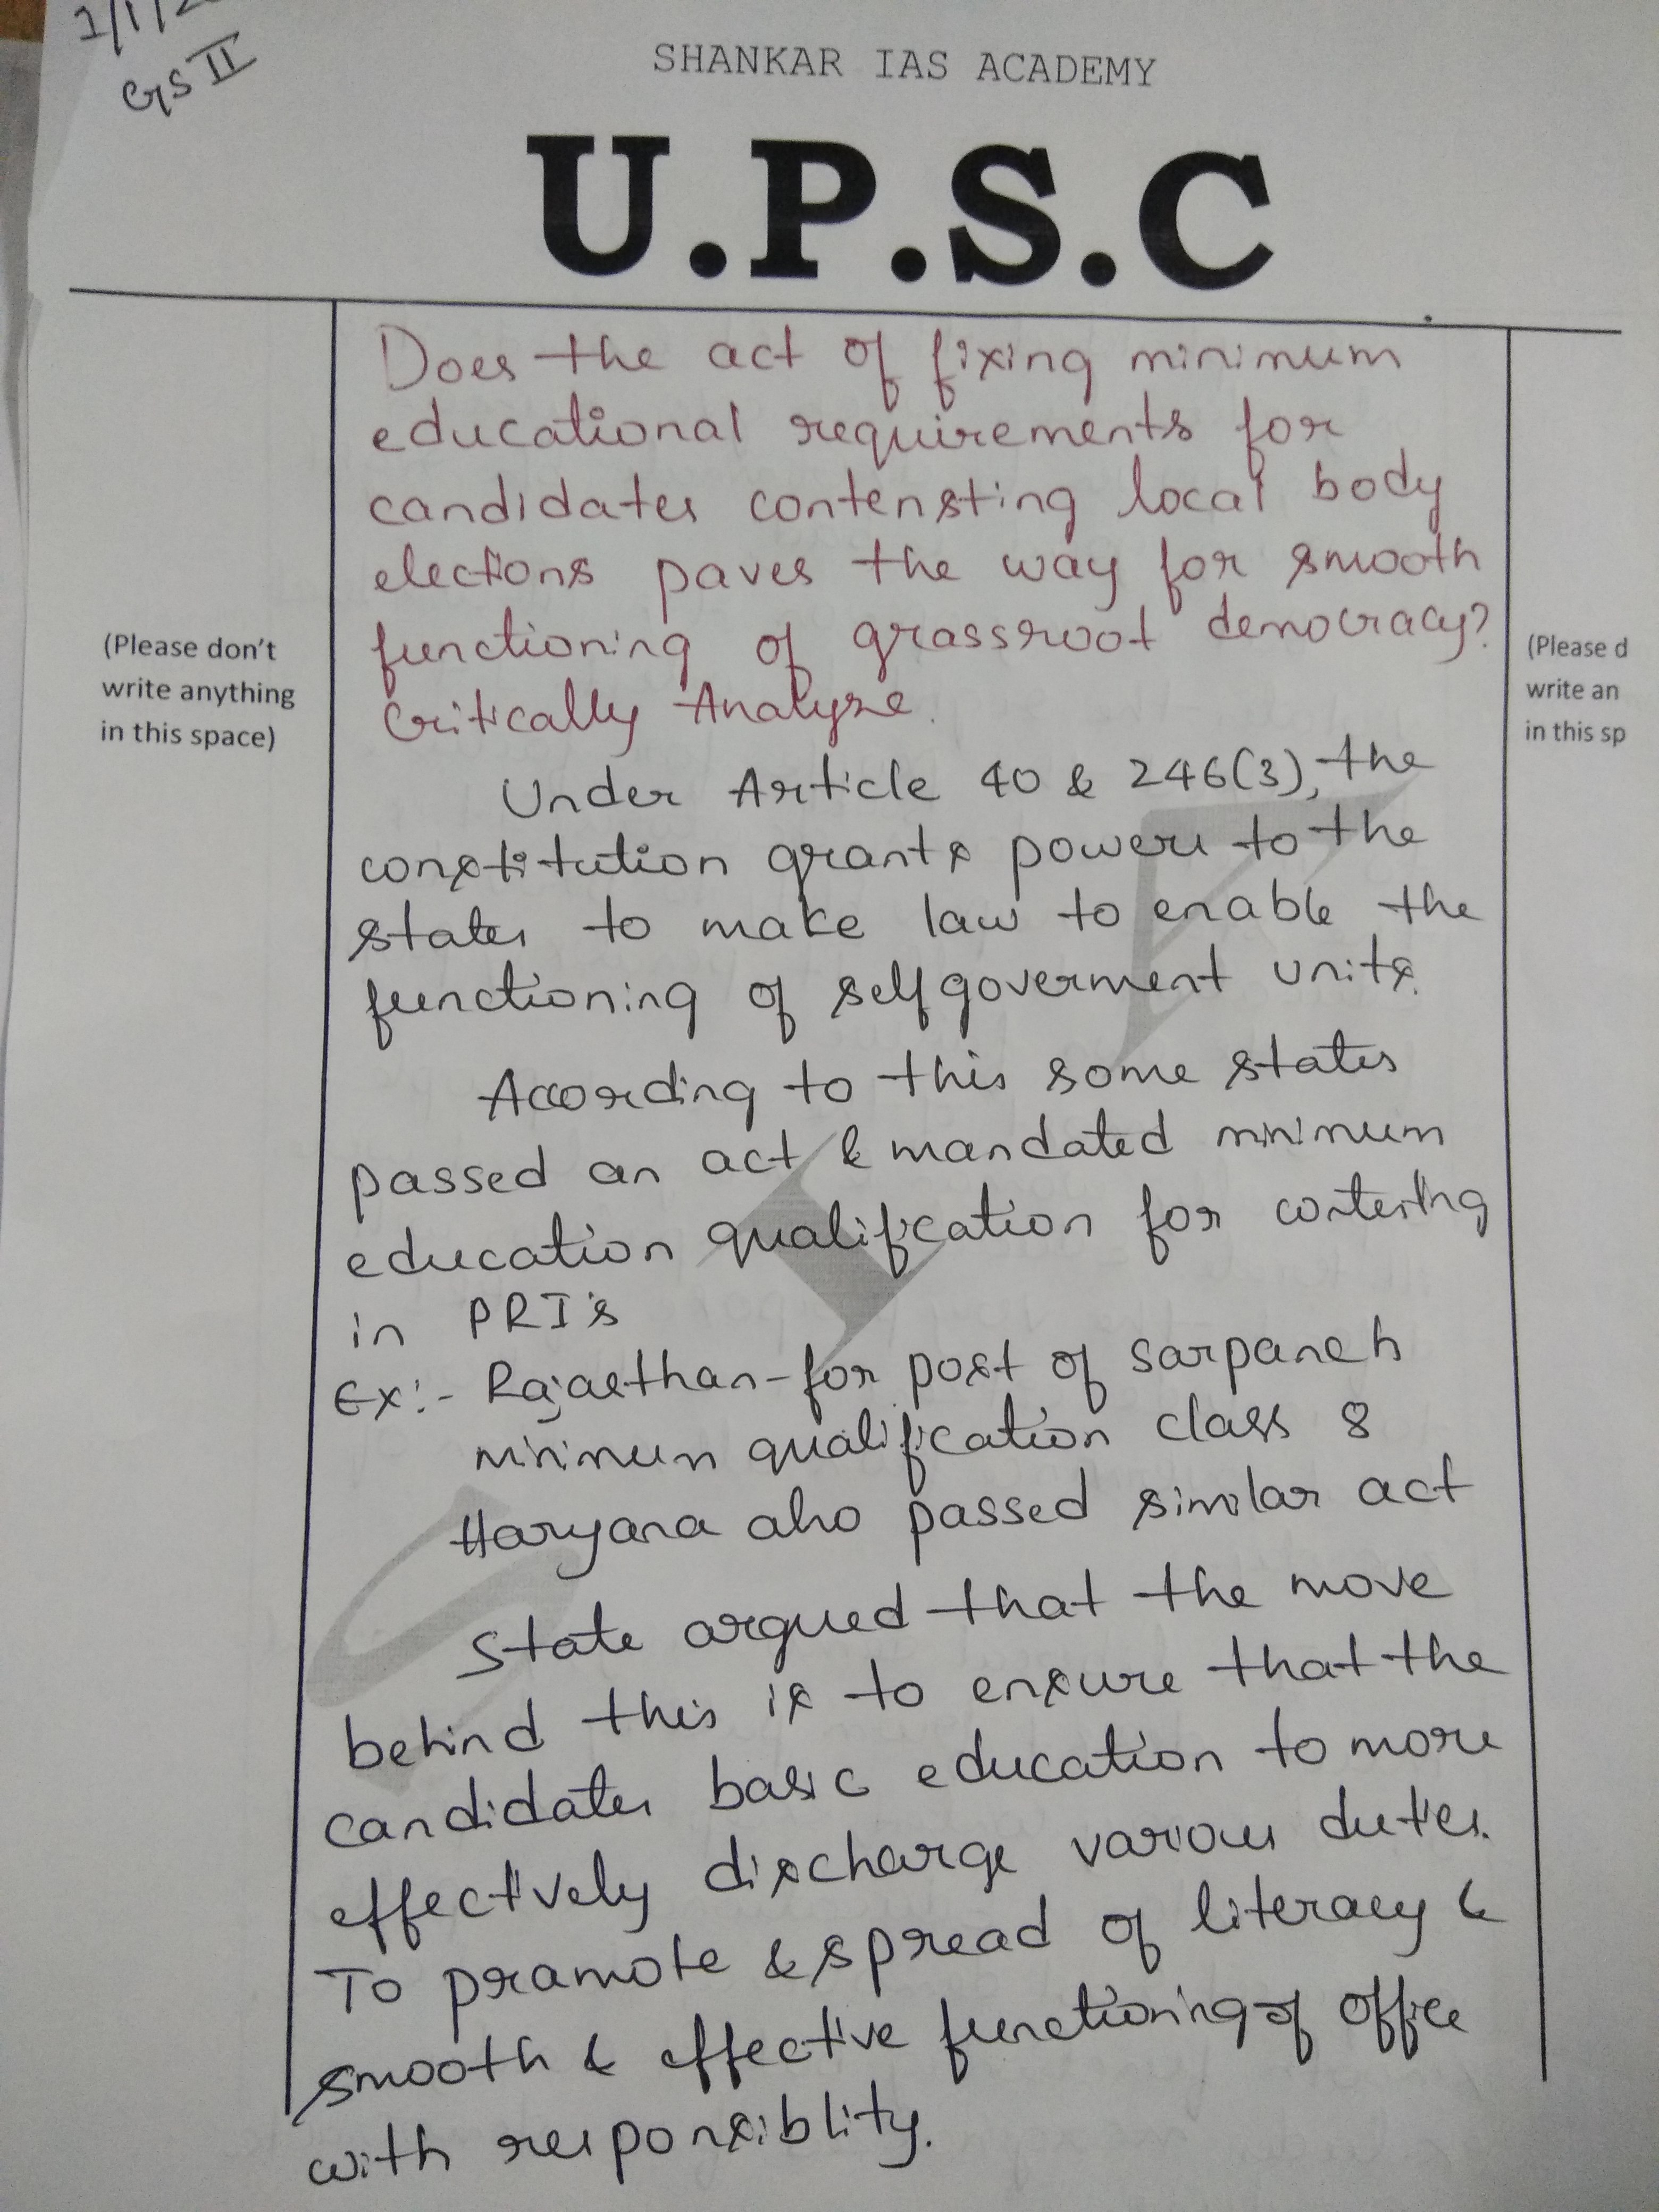 1/1/2
GS II
SHANKAR IAS ACADEMY
U.P.S.C
Does the act of fixing minimum
educational requirements for
candidates contensting local body
elections paves the way for smooth
functioning of grassroot democracy?
Critically Analyze.
(Please don't
write anything
in this space)
(Please d
write an
in this sp
Under Article 40 & 246(3), the
constitution grants powers to the
states to make law to enable the
functioning of self goverment units.
According to this some states
passed an act & mandated minimum
education qualification for contesting
in PRI's
Ex:- Rajasthan - for post of sarpanch
minimum qualification class 8
Haryana also passed similar act
State argued that the move
behind this is to ensure that the
candidates basic education to more
effectively discharge various duties.
To pramote & spread of literacy &
smooth & effective functioning of office
with responsiblity.